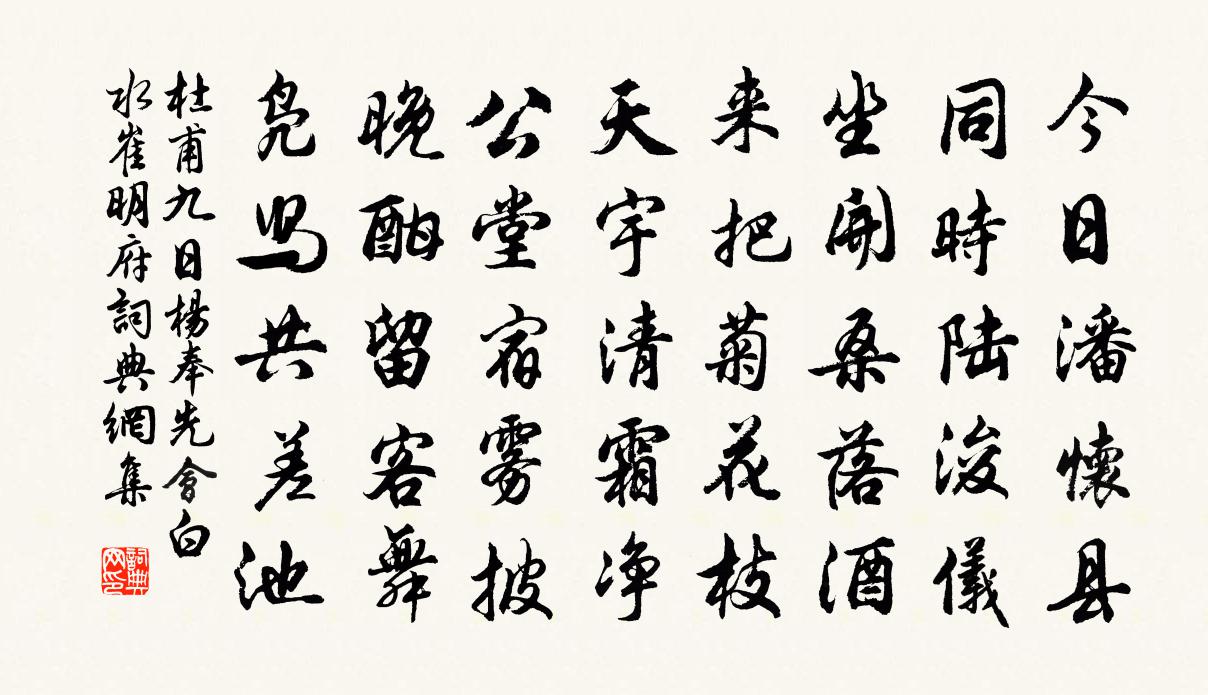 今日潘懷县
同時陆浚儀
坐開桑落酒
来把菊花枝
天宇清霜净
公堂宿雾披
晚酣留客舞
凫舄共差池
杜甫九日楊奉先會白
水崔明府詞典網集
詞典网印